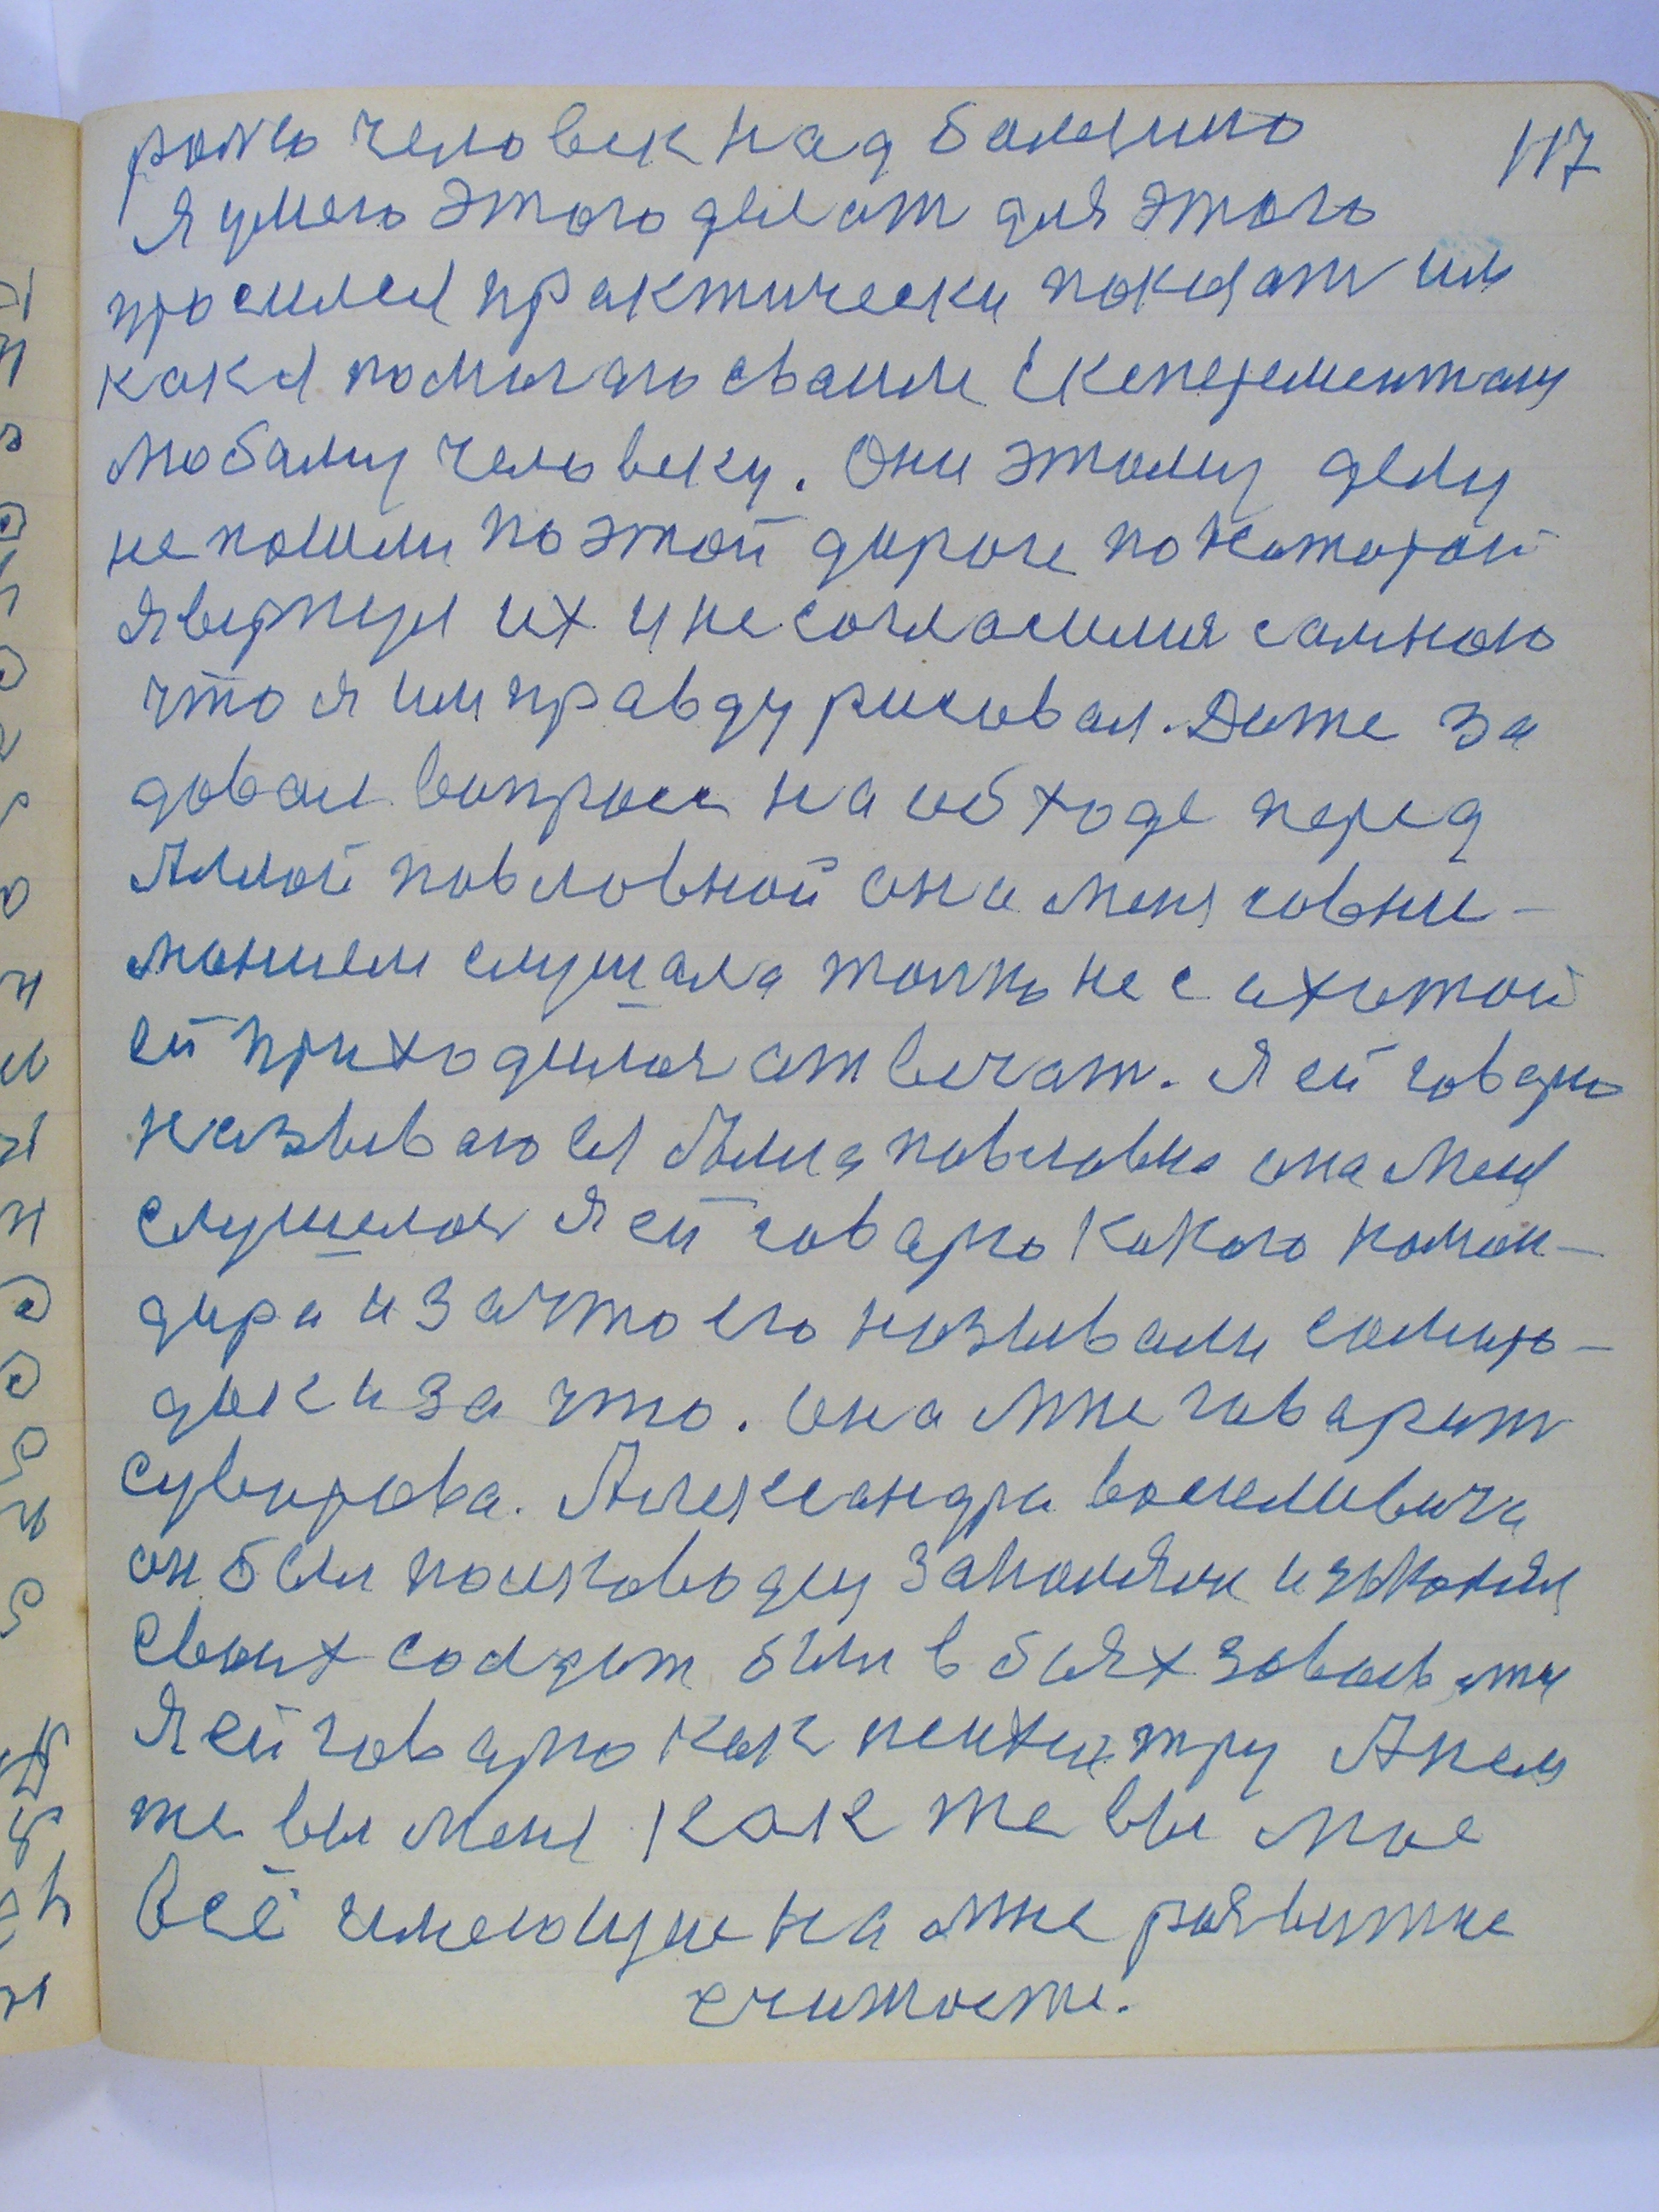 117
человек над болезню
Я умею этого делат для этого
просился практически покозат им
как я помогаю своим Експерементам
любому человеку. Они этому делу
не пошли по этой дороге по которой
Я вернул их и не согласился самною
что я им правду рисовал. Даже за
довал вопросы на обходе перед
Аллой повловной она меня човни-
монием слушала толко не с ахотой
ей приходилоя отвечат. Я ей говарю
называю ея Алла повловно она меня
слушелоя Я ей говарю какого коман-
дира и за что его называли
и за что. она мне говарит
Суворова. Александра восилевича
он был полководцу
своих солдат был в боях
Я ей говарю как психиатру А
же вы меня как же вы мое
Всё имеющие на мне розвитие
считоете.